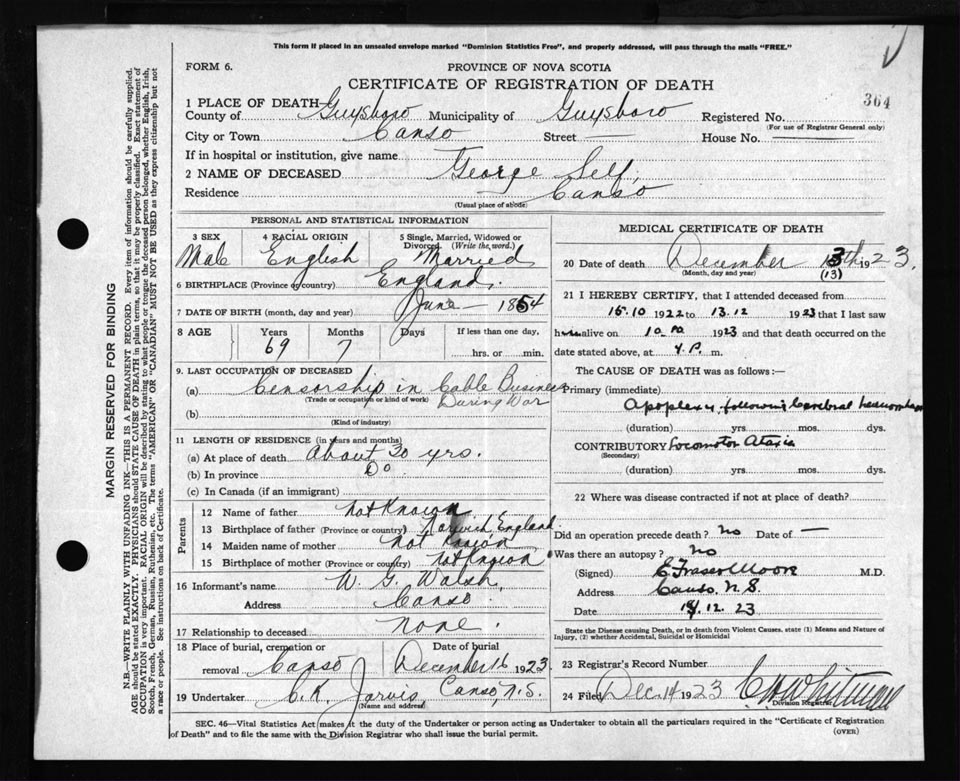 This form if placed in an unsealed envelope marked "Dominion Statistics Free", and properly addressed, will pass through the mails "FREE."
FORM 6.
PROVINCE OF NOVA SCOTIA
CERTIFICATE OF REGISTRATION OF DEATH
364
1 PLACE OF DEATH
County of Guysboro Municipality of Guysboro Registered No.
(For use of Registrar General only)
City or Town Canso Street — House No. —
If in hospital or institution, give name
2 NAME OF DECEASED George Self,
Residence Canso
(Usual place of abode)
MARGIN RESERVED FOR BINDING
N.B—WRITE PLAINLY WITH UNFADING INK—THIS IS A PERMANENT RECORD. Every item of information should be carefully supplied.
AGE should be stated EXACTLY. PHYSICIANS should STATE CAUSE OF DEATH in plain terms, so that it may be properly classified. Exact statement of
OCCUPATION is very important. RACIAL ORIGIN will be described by stating to what people or tongue the deceased person belonged, whether English, Irish,
Scotch, French, German, Russian, Ruthenian, etc. The terms "AMERICAN" OR "CANADIAN" MUST NOT BE USED as they express citizenship but not
a race or people. See instructions on back of Certificate.
PERSONAL AND STATISTICAL INFORMATION
3 SEX 4 RACIAL ORIGIN 5 Single, Married, Widowed or
Divorced (Write the word.)
Male English Married
6 BIRTHPLACE (Province or country) England.
7 DATE OF BIRTH (month, day and year) June — 1854
8 AGE Years Months Days If less than one day,
69 7 hrs. or min.
9. LAST OCCUPATION OF DECEASED
(a) Censorship in Cable Business
(Trade or occupation or kind of work) During War
(b)
(Kind of industry)
11 LENGTH OF RESIDENCE (in years and months)
(a) At place of death About 30 yrs.
(b) In province Do
(c) In Canada (if an immigrant)
Parents
12 Name of father Not Known
13 Birthplace of father (Province or country) Norwich, England.
14 Maiden name of mother Not Known
15 Birthplace of mother (Province or country) Not Known
16 Informant's name W. G. Walsh,
Address Canso.
17 Relationship to deceased None.
18 Place of burial, cremation or Date of burial
removal Canso December 16 1923
19 Undertaker C. K. Jarvis, Canso, N.S.
(Name and address)
MEDICAL CERTIFICATE OF DEATH
20 Date of death December 13th 1923.
(Month, day and year) (13)
21 I HEREBY CERTIFY, that I attended deceased from
15.10 1922 to 13.12 1923 that I last saw
him alive on 10 1923 and that death occurred on the
date stated above, at 4 P. m.
The CAUSE OF DEATH was as follows:—
Primary (immediate)
Apoplexy following Cerebral hemorrhage
(duration) yrs. mos. dys.
CONTRIBUTORY Locomotor Ataxia
(Secondary)
(duration) yrs. mos. dys.
22 Where was disease contracted if not at place of death?
Did an operation precede death? no Date of —
Was there an autopsy? no
(Signed) E Fraser Moore M.D.
Address Canso. N.S.
Date 12.23
State the Disease causing Death, or in death from Violent Causes, state (1) Means and Nature of
Injury, (2) whether Accidental, Suicidal or Homicidal
23 Registrar's Record Number
24 Filed Dec. 14 1923 Whitman
Division Registrar
SEC. 46—Vital Statistics Act makes it the duty of the Undertaker or person acting as Undertaker to obtain all the particulars required in the "Certificate of Registration
of Death" and to file the same with the Division Registrar who shall issue the burial permit.
(OVER)